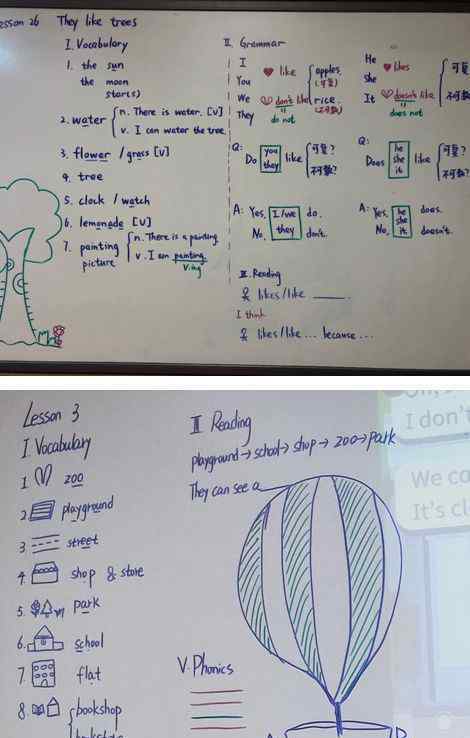 esson 26 They like trees
I. Vocabulary
1. the sun
the moon
star(s)
2. water { n. There is water. [V]
v. I can water the tree.
3. flower / grass [V]
4. tree
5. clock / watch
6. lemonade [V]
7. painting { n. There is a painting
picture v. I am painting.
Ving
II. Grammar
I
You
We
They
like
don't like
do not
apples.
(可复)
rice.
(不可数)
He
She
It
likes
doesn't like
does not
可复
不可数
Q:
Do you they like { 可复?
不可数?
Q:
Does he she it like { 可复?
不可数?
A: Yes, I/we they do.
No, don't.
A: Yes, he she it does.
No, doesn't.
III. Reading
likes/like ______.
I think
likes/like ... because ...
Lesson 3
I Vocabulary
1 zoo
2. playground
3. street
4. shop & store
5. park
6. school
7. flat
8. { bookshop
II Reading
playground → school → shop → zoo → park
They can see a
V. Phonics
I don't
We ca
It's cl